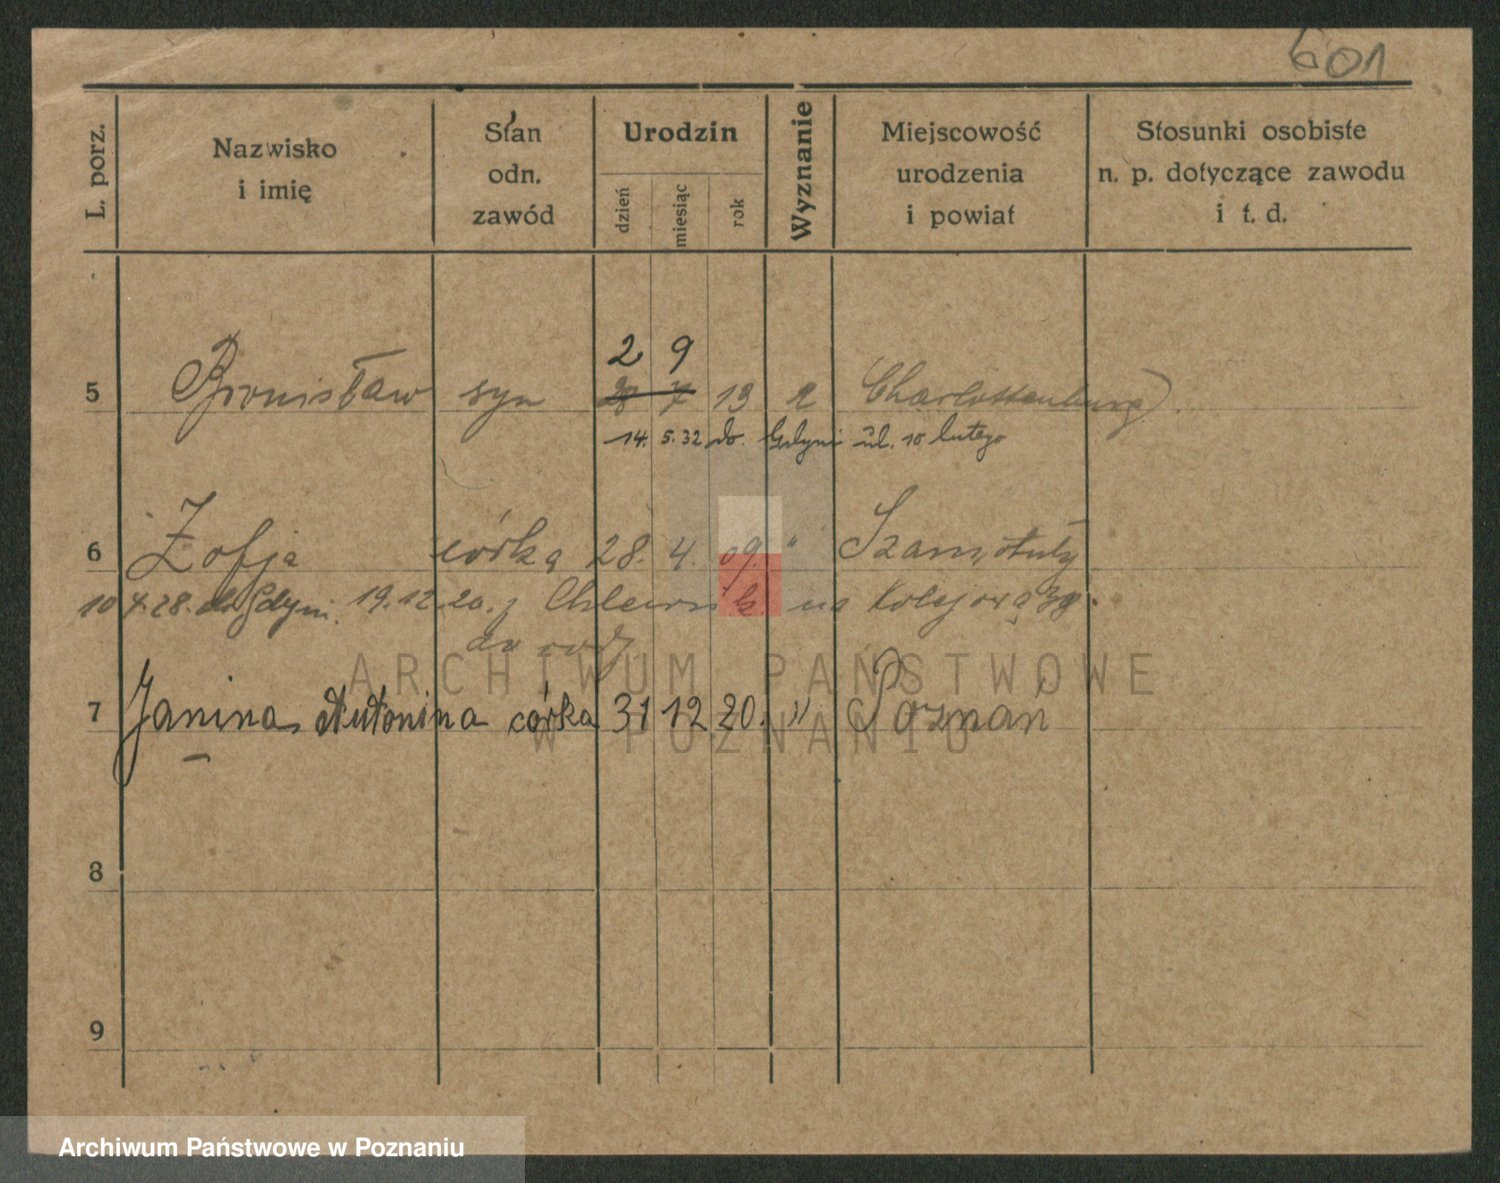 601
L. porz.
Nazwisko i imię
Stan odn. zawód
Urodzin
dzień
miesiąc
rok
Wyznanie
Miejscowość urodzenia i powiat
Stosunki osobiste n. p. dotyczące zawodu i t. d.
2 9
5 Bronisław syn 28 7 13 Charlottenburg
14. 5. 32 do Gdyni ul. 10 lutego
6 Zofja córka 28. 4. 09. " Szamotuły
10 4. 28. do Gdyni. 19. 12. 20. z na Kolejową
do
7 Janina Antonina córka 31 12 20. " Poznań
8
9
ARCHIWUM PAŃSTWOWE
W POZNANIU
Archiwum Państwowe w Poznaniu